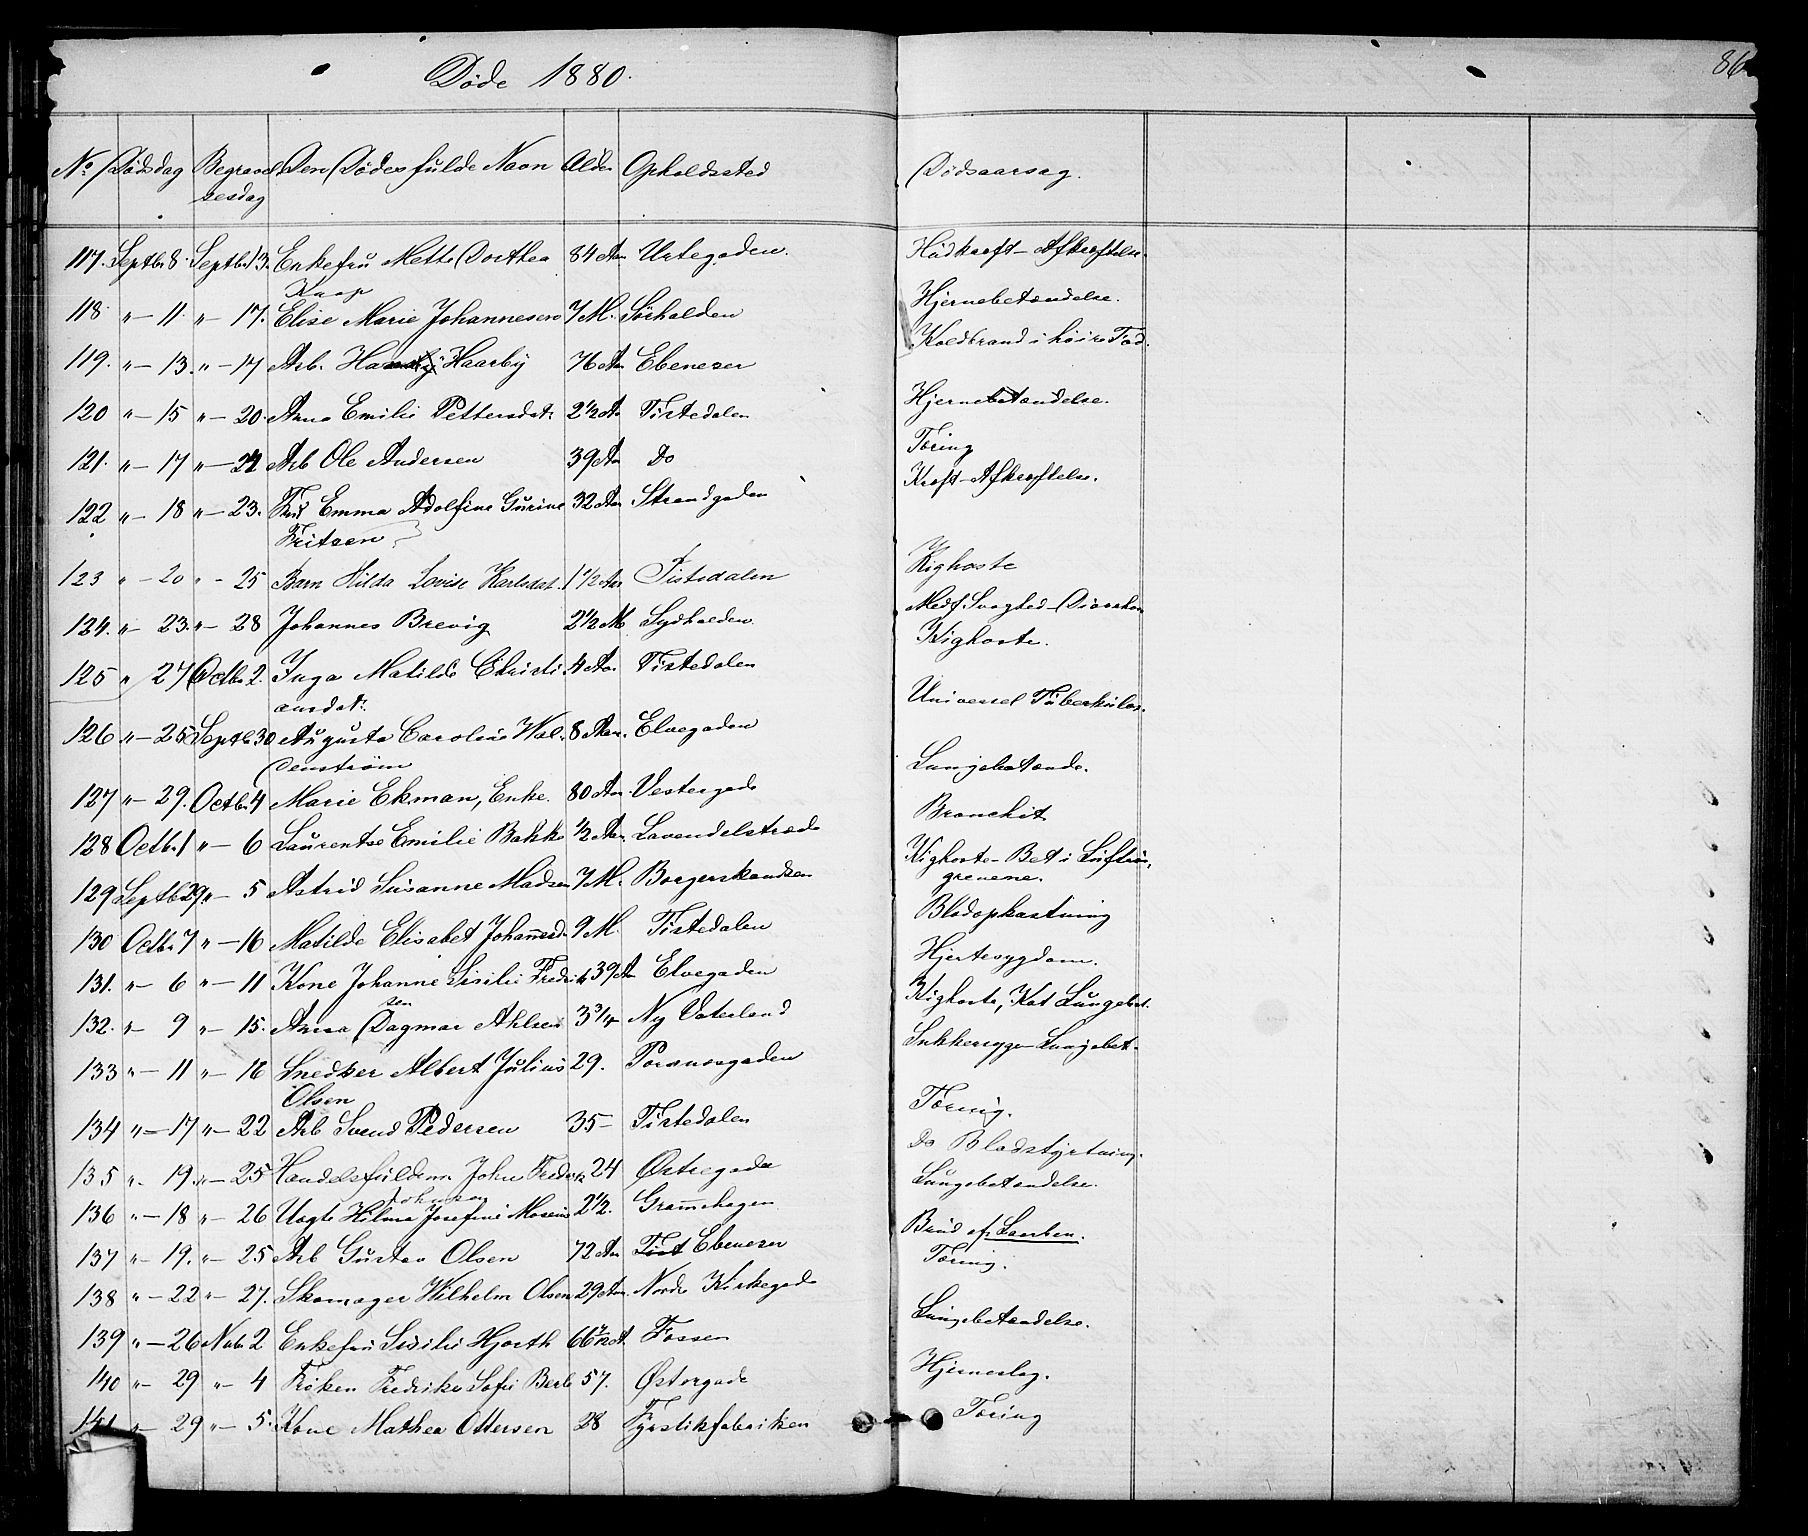 Døde 1880.
86
No Dødsdag Begravel- Den Dødes fulde Navn Alder Opholdssted Dødsaarsag.
sesdag
117. Septbr 8. Septbr 13. Enkefru Mette Dorthea 84 Aar Urtegaden. Hudkræft - Afkræftelse.
Kaap
118. " - 11. " - 17. Elise Marie Johannesen 7 M. Sørhalden Hjernebetændelse.
119. " - 13. " - 17 Arb. Haarby 76 Aar Ebeneser Koldbrand i høire Fod.
120 " - 15 " - 20. Anna Emilie Pettersdat: 2 1/2 Aar Tistedalen Hjernebetændelse.
121. " - 17 " - 24 Arb Ole Andersen 39 Aar Do Tæring
122 " - 18 " - 23. Emma Adolfine Gurine 32 Aar Strandgaden Kræft - Afkræftelse.
Fritzen
123 " - 20 " - 25 Barn Hilda Lovise Karlsdat. 1 1/2 Aar Tistedalen Kighoste
124. " - 23. " - 28 Johannes Brevig 2 1/2 M. Sydhalden. Medf. Svaghed - Diarrhea
125 " 27 Octbr 2. Inga Matilde Christi- 4 Aar. Tistedalen Kighoste.
ansdat:
126 " - 25 Septbr 30 Augusta Caroline Wal- 8 Aar. Elvegaden Universel Tuberkulos.
denstrøm
127 " - 29. Octbr 4 Marie Ekman, Enke. 80 Aar. Vestergade Lungebetænde.
128 Octbr 1 " - 6 Laurentse Emilie Bakke 1/2 Aar. Lavendelstræde Bronchit
129 Septbr 29 " - 5 Astrid Susanne Madsen 7 M. Borgerskandsen Kighoste - Bet i Luftrør
grenene.
130 Octbr 7 " - 16 Matilde Elisabet Johannesd. 9 M. Tistedalen Blodopkastning
131. " - 6 " - 11 Kone Johanne Sisilie Fredrik 39 Aar Elvegaden Hjertesygdom.
sen
132. " - 9 " - 15. Anna Dagmar Ahlsen 3 3/4 Ny Vaterland Kighoste, Kat Lungebet.
133 " - 11 " - 16 Snedker Albert Julius 29. Peranosgaden Sukkersyge - Lungebet.
Olsen
134 " - 17 " - 22 Arb Svend Pedersen 35 - Tistedalen Tæring.
135 " - 19. " - 25 Handelsfuldm. John Fredrik 24 Østregade Do Blodstyrtning.
Johnsen
136 " - 18 " - 26 Ugte Hilma Josefine 2 1/2. Gramehagen Lungebetændelse.
137 " - 19. " - 25 Arb Gustav Olsen 72 Aar Tist Ebeneser Brud af Laarben.
138 " - 22 " - 27. Skomager Wilhelm Olsen 29 Aar. Nordre Kirkegade Tæring.
139 " - 26 Novb 2 Enkefru Sisilie Hjorth 66 7/12 A. Fossen Lungebetændelse.
140 " - 29 " - 4 Frøken Fredrike Sofie Berle 57. Østergade Hjerneslag.
141. " - 29 " - 5. Kone Mathea Ottersen 28 Fyrstikfabriken Tæring